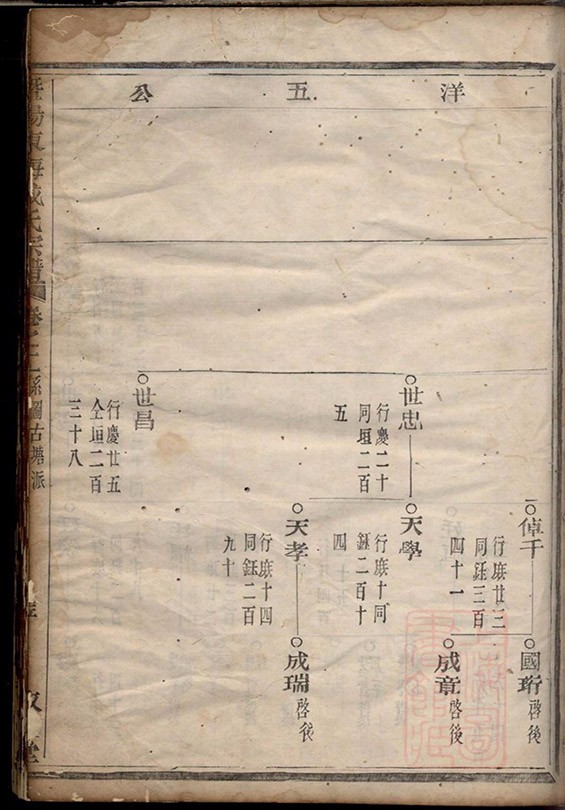 洋五公
倬千
行庻廿三
同鈺三百
四十一
國珩
啓後
成章
啓後
世忠
行慶二十
同垣二百
五
天學
行庻十同
鈺二百十
四
天孝
行庻十四
同鈺二百
九十
成瑞
啓後
世昌
行慶廿五
仝垣二百
三十八
暨陽東海
氏宗譜
卷之
系圖古塘派